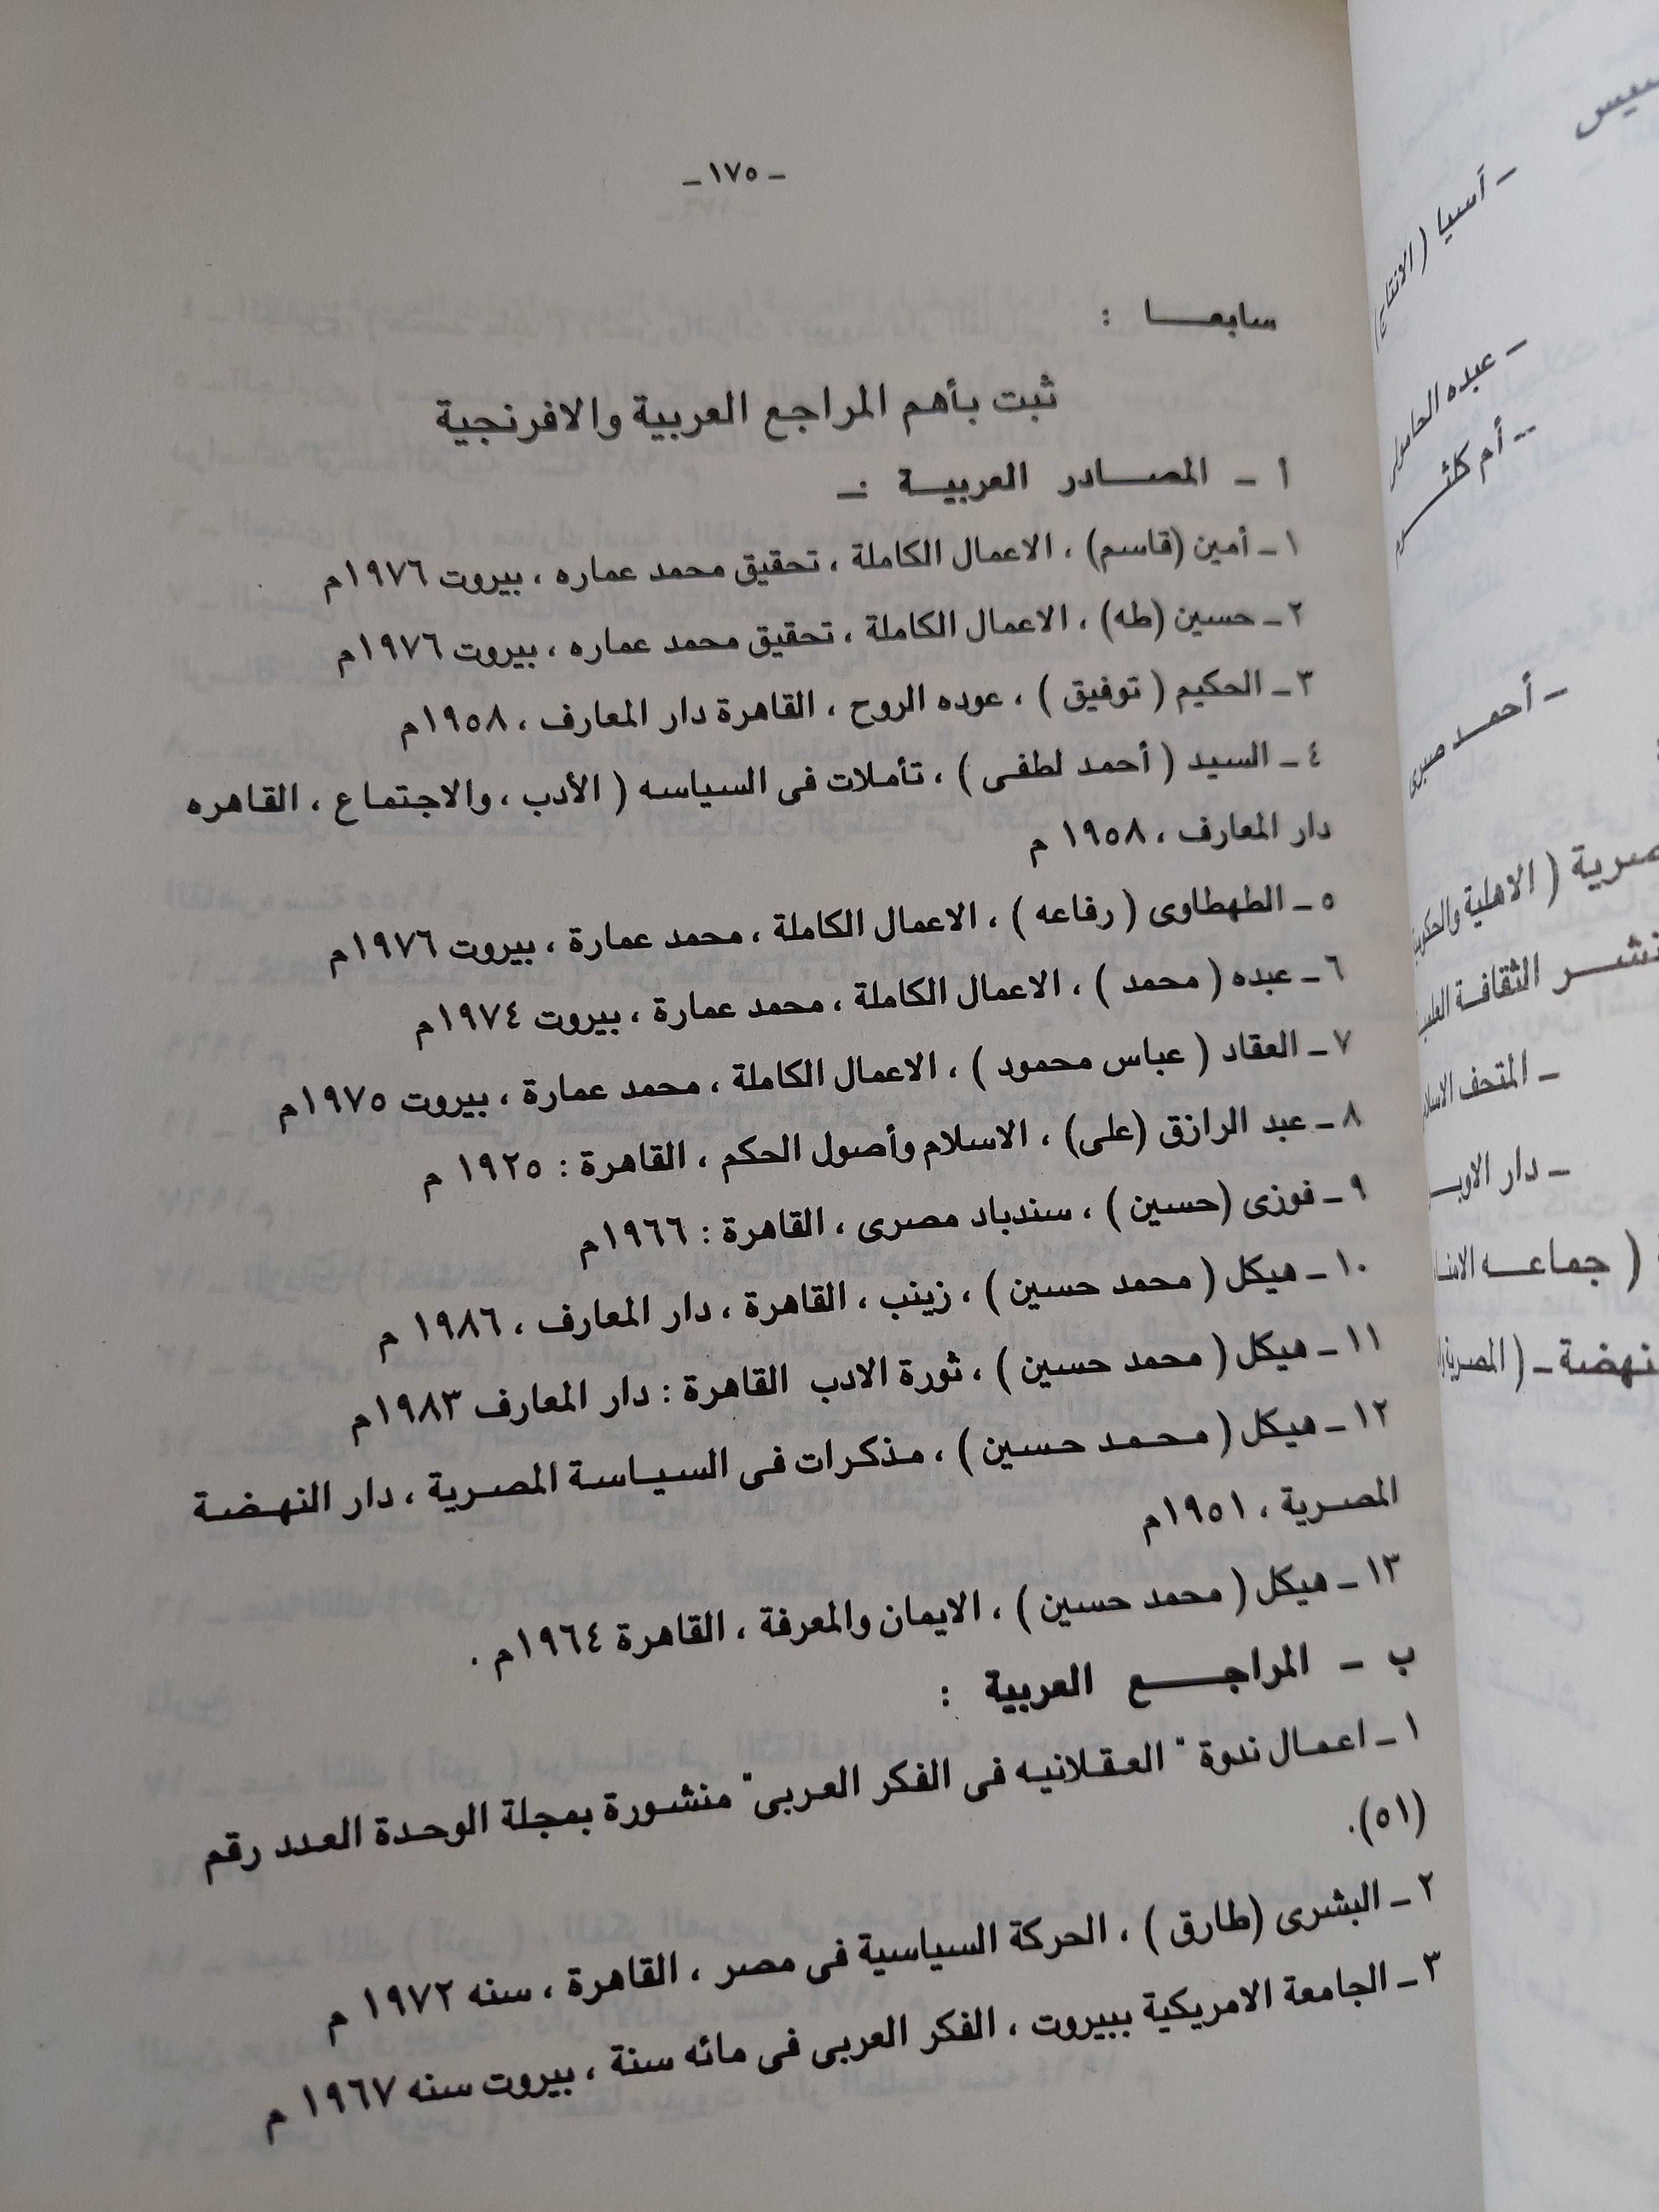 ـ ١٧٥ ـ
سابعـــا :
ثبت بأهم المراجع العربية والافرنجية
أ ـ المصـــادر العربيـــة :ـ
١ ـ أمين (قاسم) ، الاعمال الكاملة ، تحقيق محمد عماره ، بيروت ١٩٧٦م
٢ ـ حسين (طه) ، الاعمال الكاملة ، تحقيق محمد عماره ، بيروت ١٩٧٦م
٣ ـ الحكيم ( توفيق ) ، عوده الروح ، القاهرة دار المعارف ، ١٩٥٨م
٤ ـ السيد ( أحمد لطفى ) ، تأملات فى السياسه ( الأدب ، والاجتماع ، القاهره
دار المعارف ، ١٩٥٨ م
٥ ـ الطهطاوى ( رفاعه ) ، الاعمال الكاملة ، محمد عمارة ، بيروت ١٩٧٦م
٦ ـ عبده ( محمد ) ، الاعمال الكاملة ، محمد عمارة ، بيروت ١٩٧٤م
٧ ـ العقاد ( عباس محمود ) ، الاعمال الكاملة ، محمد عمارة ، بيروت ١٩٧٥م
٨ ـ عبد الرازق (على) ، الاسلام وأصول الحكم ، القاهرة : ١٩٢٥ م
٩ ـ فوزى (حسين ) ، سندباد مصرى ، القاهرة : ١٩٦٦م
١٠ ـ هيكل ( محمد حسين ) ، زينب ، القاهرة ، دار المعارف ، ١٩٨٦ م
١١ ـ هيكل ( محمد حسين ) ، ثورة الادب القاهرة : دار المعارف ١٩٨٣م
١٢ ـ هيكل ( محمد حسين ) ، مذكرات فى السياسة المصرية ، دار النهضة
المصرية ، ١٩٥١م
١٣ ـ هيكل ( محمد حسين ) ، الايمان والمعرفة ، القاهرة ١٩٦٤م .
ب ـ المراجـــع العربية :
١ ـ اعمال ندوة " العقلانيه فى الفكر العربى" منشورة بمجلة الوحدة العدد رقم
(٥١).
٢ ـ البشرى (طارق ) ، الحركة السياسية فى مصر ، القاهرة ، سنه ١٩٧٢ م
٣ ـ الجامعة الامريكية ببيروت ، الفكر العربى فى مائه سنة ، بيروت سنه ١٩٦٧ م
ـ آسيا ( الانتاج )
ـ عبده الحامولى
ـ أم كلثـــوم
ـ أحمـــد صبرى
( الاهلية والحكومية
الثقافة
ـ المتحف
ـ دار
( جماعـــه
ـ ( المصرية